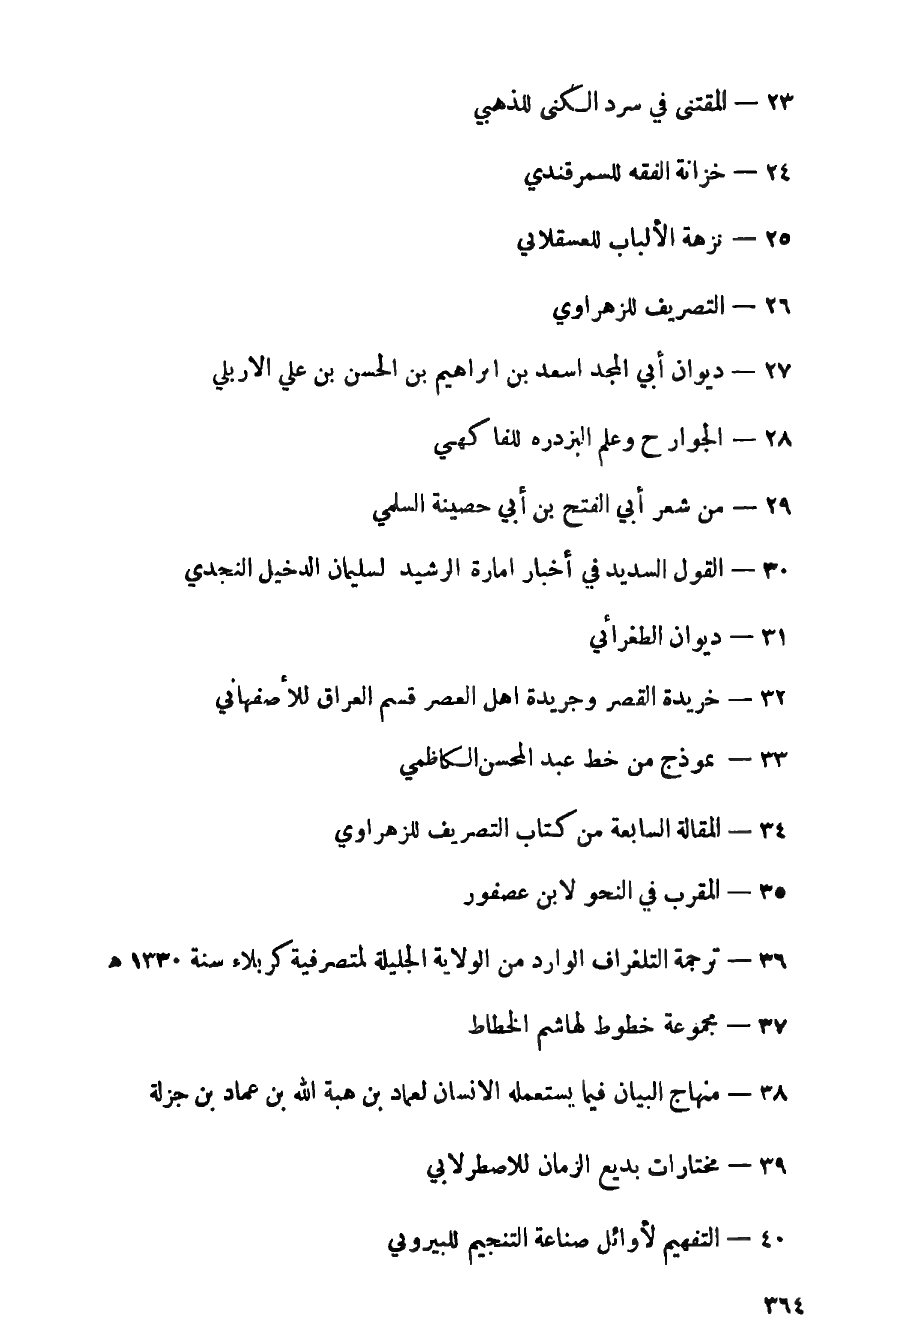 ٢٣ — المقتنى في سرد الكنى للذهبي
٢٤ — خزانة الفقه للسمرقندي
٢٥ — نزهة الألباب للعسقلاني
٢٦ — التصريف للزهراوي
٢٧ — ديوان أبي المجد اسعد بن ابراهيم بن الحسن بن علي الاربلي
٢٨ — الجوارح وعلم البزدره للفاكهي
٢٩ — من شعر أبي الفتح بن أبي حصينة السلمي
٣٠ — القول السديد في أخبار امارة الرشيد لسليمان الدخيل النجدي
٣١ — ديوان الطغرائي
٣٢ — خريدة القصر وجريدة اهل العصر قسم العراق للأصفهاني
٣٣ — نموذج من خط عبد المحسن الكاظمي
٣٤ — المقالة السابعة من كتاب التصريف للزهراوي
٣٥ — المقرب في النحو لابن عصفور
٣٦ — ترجمة التلغراف الوارد من الولاية الجليلة لمتصرفية كربلاء سنة ١٣٣٠ هـ
٣٧ — مجموعة خطوط لهاشم الخطاط
٣٨ — منهاج البيان فيما يستعمله الانسان لعماد بن هبة الله بن عماد بن جزلة
٣٩ — مختارات بديع الزمان للاصطرلابي
٤٠ — التفهيم لأوائل صناعة التنجيم للبيروني
٣٦٤